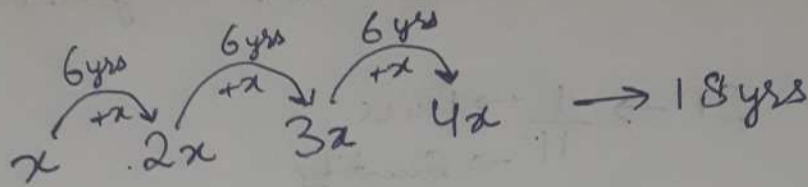 6yrs 6yrs 6yrs
+x +x +x
x 2x 3x 4x → 18yrs